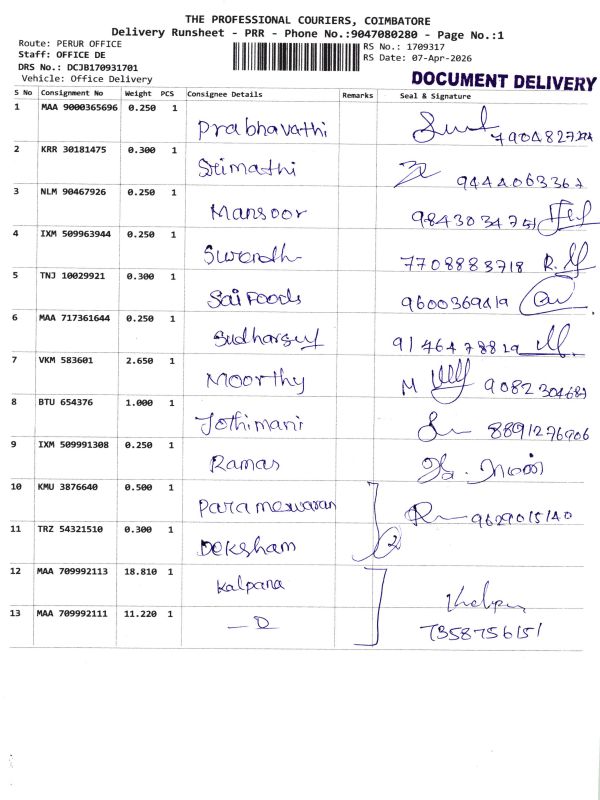 THE PROFESSIONAL COURIERS, COIMBATORE
Delivery Runsheet - PRR - Phone No.:9047080280 - Page No.:1
Route: PERUR OFFICE
Staff: OFFICE DE
DRS No.: DCJB170931701
Vehicle: Office Delivery
RS No.: 1709317
RS Date: 07-Apr-2026
DOCUMENT DELIVERY
S No Consignment No Weight PCS Consignee Details Remarks Seal & Signature
1 MAA 9000365696 0.250 1 Prabhavathi
2 KRR 30181475 0.300 1 Srimathi 9444063367
3 NLM 90467926 0.250 1 Mansoor 9843034751
4 IXM 509963944 0.250 1 7708883718
5 TNJ 10029921 0.300 1 Sai Foods 9600369419
6 MAA 717361644 0.250 1 9146478829
7 VKM 583601 2.650 1 Moorthy M 9082304687
8 BTU 654376 1.000 1 Jothimani 8891276906
9 IXM 509991308 0.250 1 Ramas
10 KMU 3876640 0.500 1 Parameswaran 9629015140
11 TRZ 54321510 0.300 1 Deksham 2
12 MAA 709992113 18.810 1 Kalpana
13 MAA 709992111 11.220 1 — D 7358756151